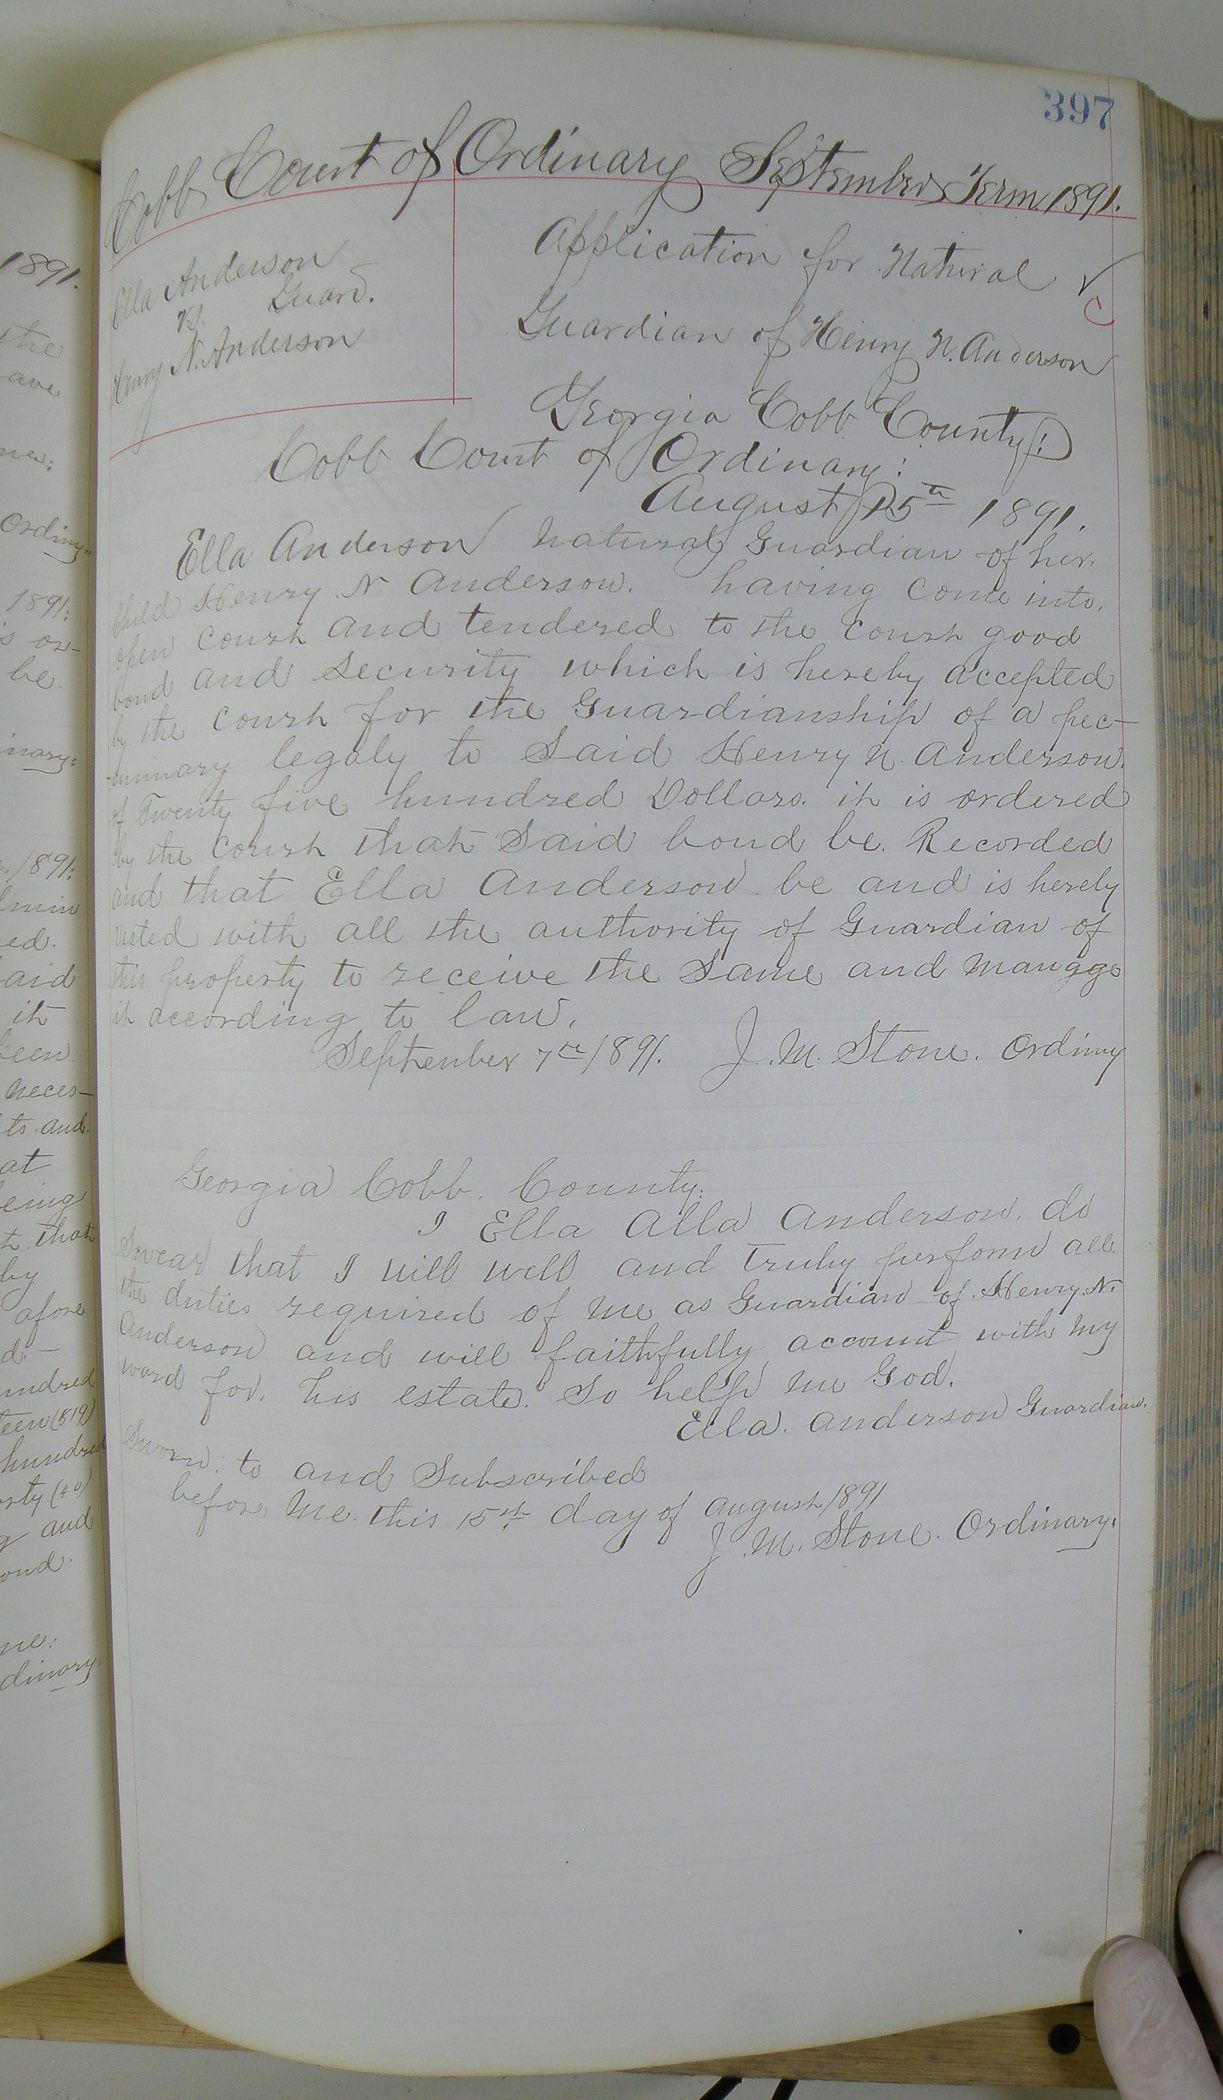 397
Cobb Court of Ordinary September Term 1891.
Ella Anderson
vs. Guard.
Henry N. Anderson
Application for Natural
Guardian of Henry N. Anderson
Georgia Cobb County:
Cobb Court of Ordinary:
August 15th 1891.
Ella Anderson natural Guardian of her
child Henry N. Anderson. having come into
open court and tendered to the court good
bond and Security which is hereby accepted
by the court for the Guardianship of a pec-
uniary legaly to Said Henry N. Anderson.
of Twenty five hundred Dollars. it is ordered
by the court that Said bond be. Recorded
and that Ella Anderson be and is hereby
vested with all the authority of Guardian of
this property to receive the Same and manage
it according to law.
September 7th 1891. J. M. Stone. Ordiny
Georgia Cobb. County:
I Ella Alla Anderson. do
Swear that I will well and Truly perform all
the duties required of me as Guardian of Henry N.
Anderson and will faithfully account with my
ward for. his estate. So help me God.
Ella. Anderson Guardian.
Sworn: to and Subscribed
before me. this 15th day of August 1891
J. M. Stone. Ordinary:
1891.
the
ave
Ordiny
1891:
is or-
be
inary:
1891:
ed.
aid
it
been
neces-
ts and
at
eing
t that
by
afore
d. -
undred
teen (819)
hundred
orty (40)
and
ond.
dinary